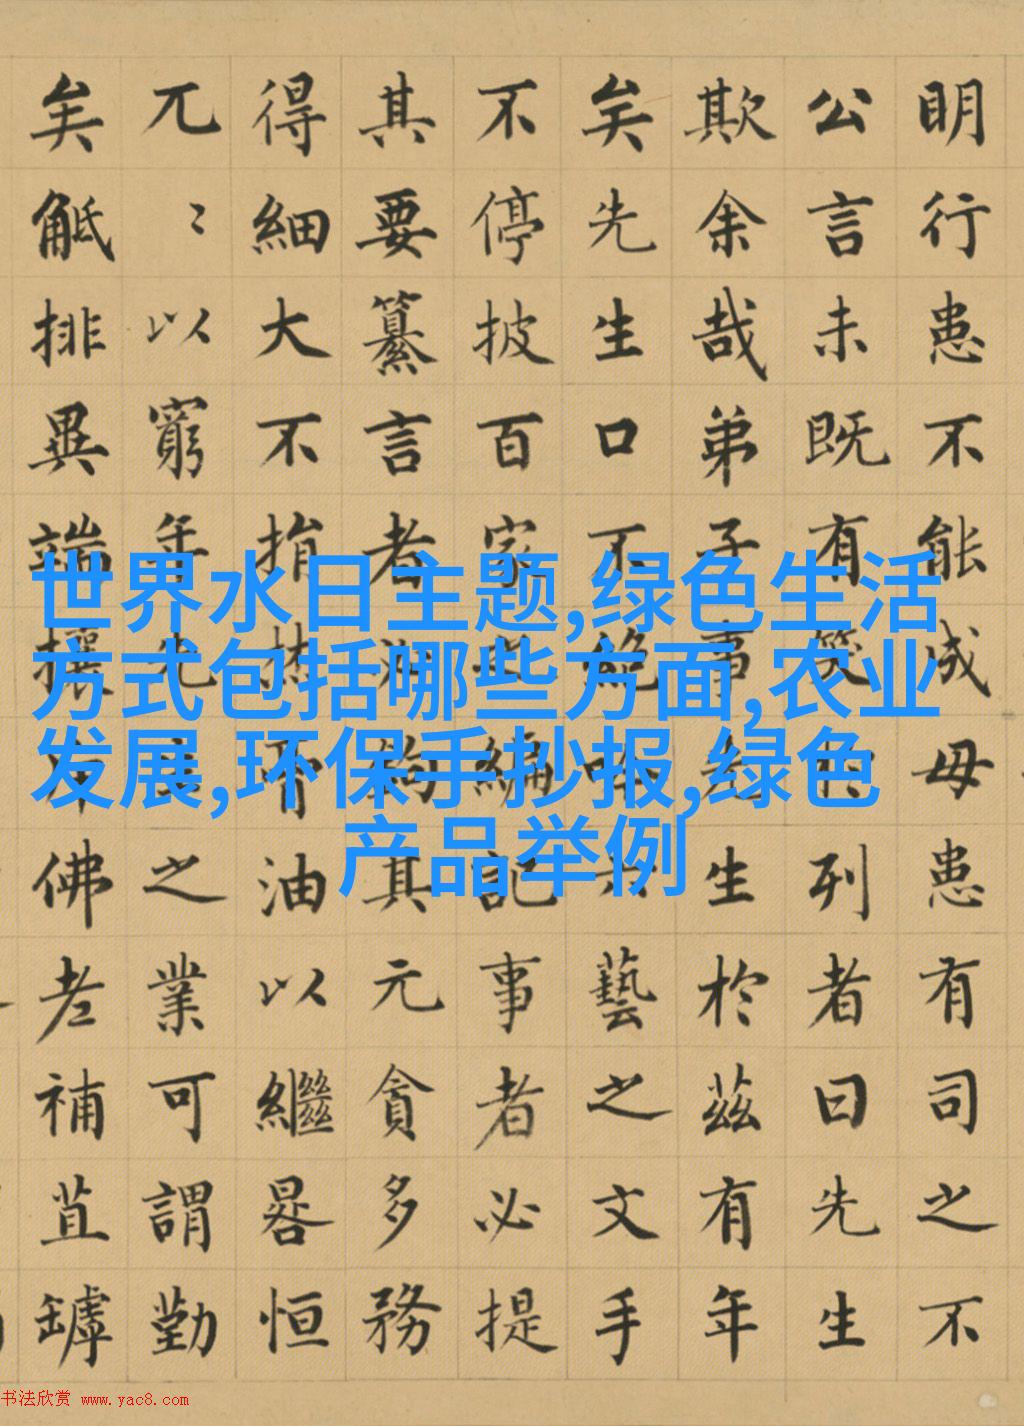 明行患不能成毋患有司之不
公言未既有笑於列者曰先生
欺余哉弟子事先生於茲有年
矣先生口不絕吟六藝之文手
不停披百家之編記事者必提
其要纂言者必鉤其元貪多務
得細大不捐焚膏油以繼晷恒
兀〻以窮年先生之業可謂勤
矣觝排異端攘斥佛老補苴罅
世界水日主题,绿色生活
方式包括哪些方面,农业
发展,环保手抄报,绿色
产品举例
书法欣赏 www.yac8.com